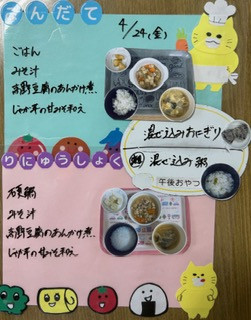 こんだて
4/24(金)
ごはん
みそ汁
お麩と豆腐のあんかけ煮
じゃが芋の甘みそ和え
混ぜ込みおにぎり
混ぜ込み粥
午後おやつ
りにゅうしょく
みそ汁
じゃが芋の甘みそ和え